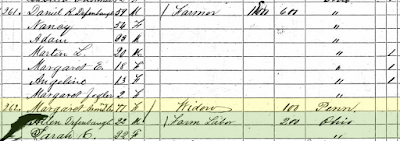 261 Daniel R. Defenbaugh 57 M / Farmer 600 "
Nancy 54 F "
Adam M "
Martin L. 20 M " 1
Margaret E. 18 F " 1
Angeline 13 F " 1
Margaret 2 F "
262 Margaret 77 F / Widow 100 Penn
Defenbaugh 22 M / Farm Labor 200 Ohio
Sarah C. 22 F "